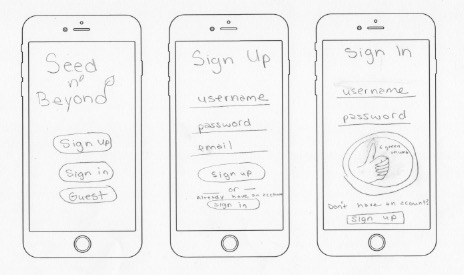 Seed
n'
Beyond
Sign Up
Sign in
Guest
Sign Up
username
password
email
Sign up
or
Already have an account
Sign In
Sign In
username
password
a green
thumb
Don't have an account?
Sign up